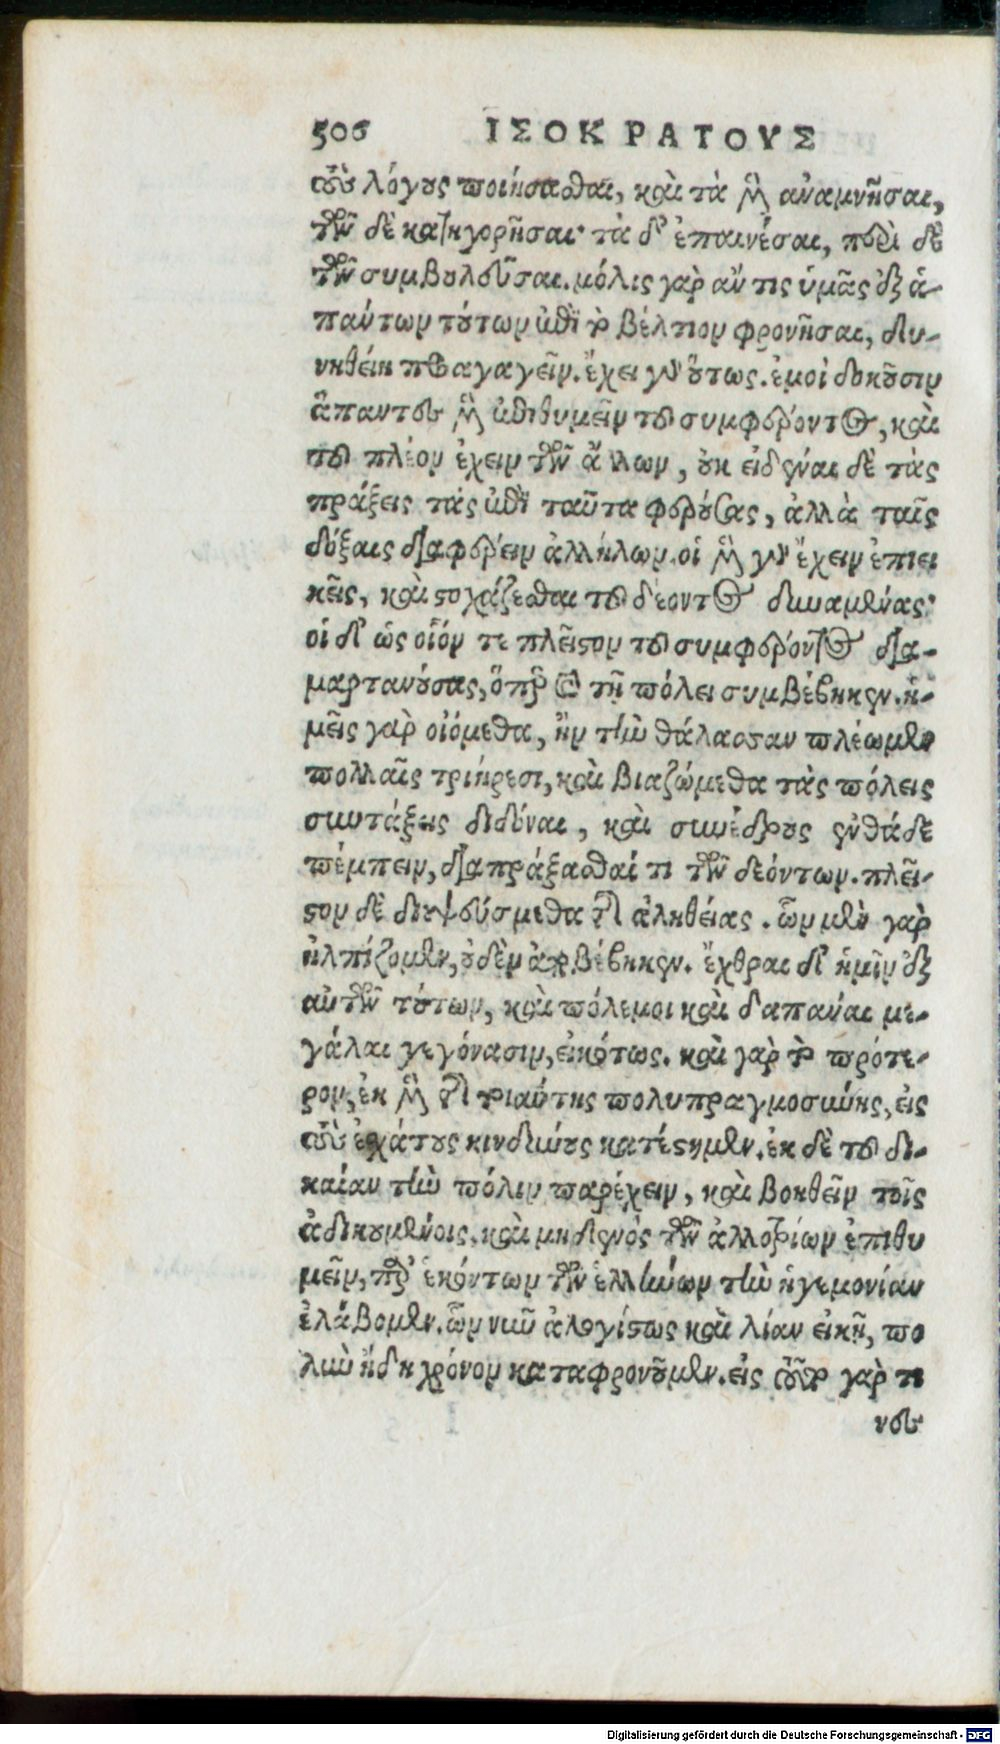 506 ΙΣΟΚΡΑΤΟΥΣ
τοὺς λόγους ποιήσασθαι, καὶ τὰ μὲν ἀναμνῆσαι,
τῶν δὲ κατηγορῆσαι· τὰ δ' ἐπαινέσαι, περὶ δὲ
τῶν συμβουλεῦσαι. μόλις γὰρ ἄν τις ὑμᾶς ἐξ ἁ-
πάντων τούτων ἐπὶ τὸ βέλτιον φρονῆσαι, δυ-
νηθείη προαγαγεῖν. ἔχει γὰρ οὕτως. ἐμοὶ δοκοῦσιν
ἅπαντες μὲν ἐπιθυμεῖν τοῦ συμφέροντος, καὶ
τοῦ πλέον ἔχειν τῶν ἄλλων, οὐκ εἰδέναι δὲ τὰς
πράξεις τὰς ἐπὶ ταῦτα φερούσας, ἀλλὰ ταῖς
δόξαις διαφέρειν ἀλλήλων. οἱ μὲν γὰρ ἔχειν ἐπιει
κεῖς, καὶ στοχάζεσθαι τοῦ δέοντος δυναμένας·
οἱ δ' ὡς οἷόν τε πλεῖστον τοῦ συμφέροντος δια-
μαρτανούσας, ὅπερ καὶ τῇ πόλει συμβέβηκεν. ἡ-
μεῖς γὰρ οἰόμεθα, ἢν τὴν θάλασσαν πλέωμεν
πολλαῖς τριήρεσι, καὶ βιαζώμεθα τὰς πόλεις
συντάξεις διδόναι, καὶ συνέδρους ἐνθάδε
πέμπειν, διαπράξασθαί τι τῶν δεόντων. πλεῖ-
στον δὲ διεψεύσμεθα τῆς ἀληθείας. ὧν μὲν γὰρ
ἠλπίζομεν, οὐδὲν ἀποβέβηκεν. ἔχθραι δ' ἡμῖν ἐξ
αὐτῶν τούτων, καὶ πόλεμοι καὶ δαπάναι με-
γάλαι γεγόνασιν, εἰκότως. καὶ γὰρ τὸ πρότε-
ρον, ἐκ μὲν τῆς τοιαύτης πολυπραγμοσύνης, εἰς
τοὺς ἐσχάτους κινδύνους κατέστημεν. ἐκ δὲ τοῦ δι-
καίαν τὴν πόλιν παρέχειν, καὶ βοηθεῖν τοῖς
ἀδικουμένοις, καὶ μηδενὸς τῶν ἀλλοτρίων ἐπιθυ
μεῖν, παρ' ἑκόντων τῶν ἑλλήνων τὴν ἡγεμονίαν
ἐλάβομεν. ὧν νῦν ἀλογίστως καὶ λίαν εἰκῇ, πο
λὺν ἤδη χρόνον καταφρονοῦμεν. εἰς τοῦτο γὰρ τι
νες
Digitalisierung gefördert durch die Deutsche Forschungsgemeinschaft - DFG